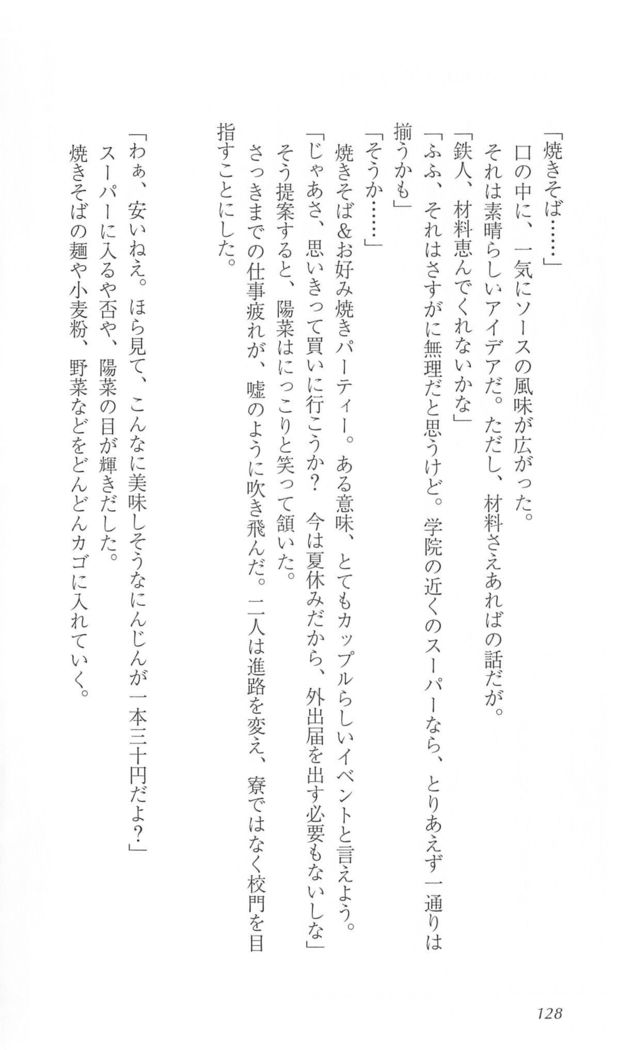 「焼きそば……」
口の中に、一気にソースの風味が広がった。
それは素晴らしいアイデアだ。ただし、材料さえあればの話だが。
「鉄人、材料恵んでくれないかな」
「ふふ、それはさすがに無理だと思うけど。学院の近くのスーパーなら、とりあえず一通りは
揃うかも」
「そうか……」
焼きそば＆お好み焼きパーティー。ある意味、とてもカップルらしいイベントと言えよう。
「じゃあさ、思いきって買いに行こうか？　今は夏休みだから、外出届を出す必要もないしな」
そう提案すると、陽菜はにっこりと笑って頷いた。
さっきまでの仕事疲れが、嘘のように吹き飛んだ。二人は進路を変え、寮ではなく校門を目
指すことにした。
「わぁ、安いねえ。ほら見て、こんなに美味しそうなにんじんが一本三十円だよ？」
スーパーに入るや否や、陽菜の目が輝きだした。
焼きそばの麺や小麦粉、野菜などをどんどんカゴに入れていく。
128